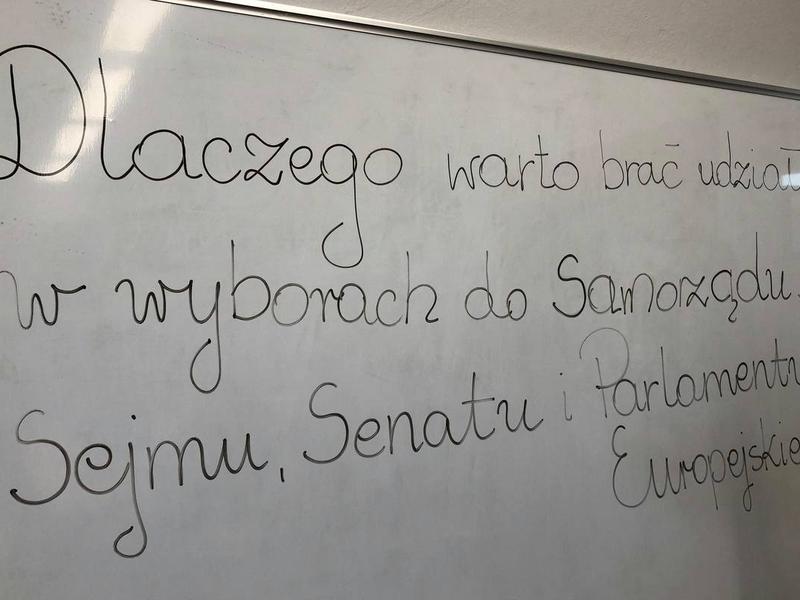 Dlaczego warto brać udział
w wyborach do Samorządu,
Sejmu, Senatu i Parlamentu
Europejskie